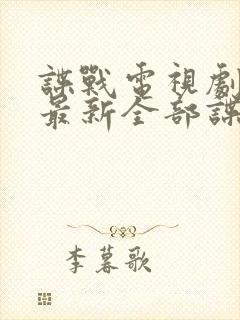 諜戰電視劇
最新全部諜
李暮歌